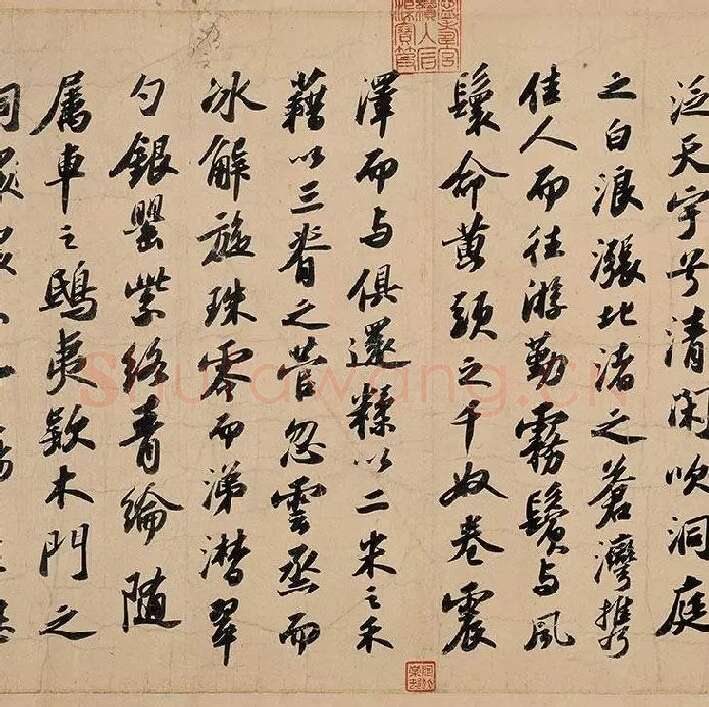 泛天宇兮清閑吹洞庭
之白浪漲北渚之蒼灣攜
佳人而往游勤霧鬢与風
鬟命黄頭之千奴卷震
澤而与俱還糅以二米之禾
藉以三脊之菅忽雲烝而
冰解旋珠零而涕潸翠
勺銀罌紫絡青綸随
属車之鴟夷款木門之
Shufawang.CN